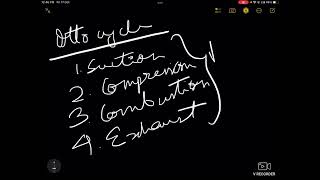 Otto cycle
1. Suction
2. Compression
3. Combustion
4. Exhaust
V RECORDER